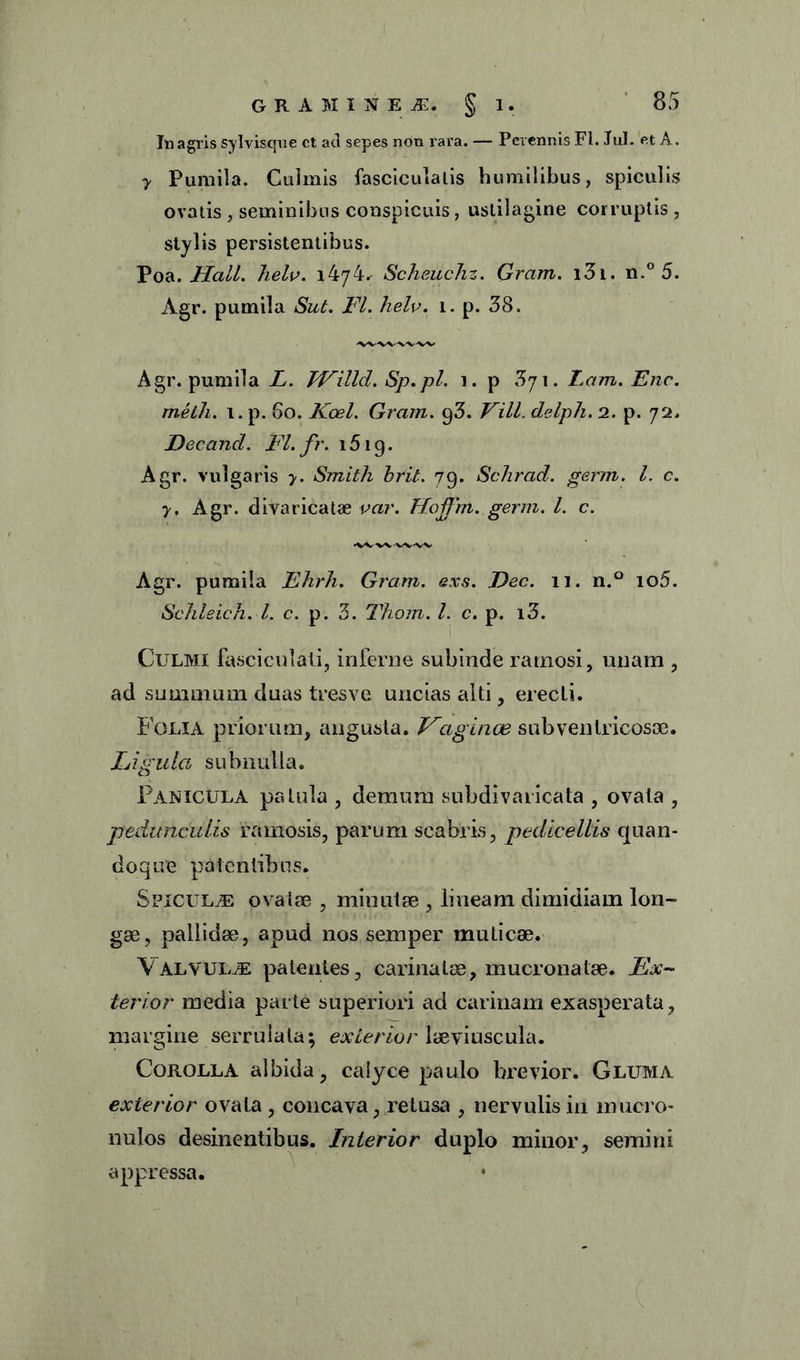 GRAMINEÆ. § 1. 85
In agris sylvisque et ad sepes non rara. — Perennis Fl. Jul. et A.
γ Pumila. Culmis fasciculatis humilibus, spiculis
ovatis, seminibus conspicuis, ustilagine corruptis,
stylis persistentibus.
Poa. Hall. helv. 1474. Scheuchz. Gram. 131. n.° 5.
Agr. pumila Sut. Fl. helv. 1. p. 38.
Agr. pumila L. Willd. Sp. pl. 1. p 371. Lam. Enc.
méth. 1. p. 60. Kœl. Gram. 93. Vill. delph. 2. p. 72.
Decand. Fl. fr. 1519.
Agr. vulgaris γ. Smith brit. 79. Schrad. germ. l. c.
γ. Agr. divaricatæ var. Hoffm. germ. l. c.
Agr. pumila Ehrh. Gram. exs. Dec. 11. n.° 105.
Schleich. l. c. p. 3. Thom. l. c. p. 13.
CULMI fasciculati, inferne subinde ramosi, unam,
ad summum duas tresve uncias alti, erecti.
FOLIA priorum, angusta. Vaginæ subventricosæ.
Ligula subnulla.
PANICULA patula, demum subdivaricata, ovata,
pedunculis ramosis, parum scabris, pedicellis quan-
doque patentibus.
SPICULÆ ovatæ, minutæ, lineam dimidiam lon-
gæ, pallidæ, apud nos semper muticæ.
VALVULÆ patentes, carinatæ, mucronatæ. Ex-
terior media parte superiori ad carinam exasperata,
margine serrulata; exterior læviuscula.
COROLLA albida, calyce paulo brevior. GLUMA
exterior ovata, concava, retusa, nervulis in mucro-
nulos desinentibus. Interior duplo minor, semini
appressa.